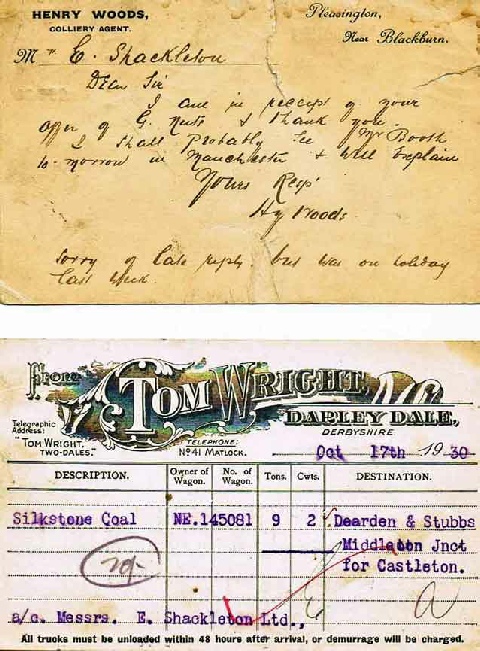 HENRY WOODS,
COLLIERY AGENT.
Pleasington,
Near Blackburn.
Mr E. Shackleton
Dear Sir
I am in receipt of your
offer of G. Nuts & thank you.
I shall Probably see Mr Booth
to-morrow in Manchester & will Explain
Yours Resp
Hy Woods.
Sorry of late reply, but was on holiday
last week.
From
TOM WRIGHT,
DARLEY DALE,
DERBYSHIRE
Telegraphic
Address:
"TOM WRIGHT,
TWO-DALES."
TELEPHONE:
No 41 MATLOCK.
Oct 17th 1930
DESCRIPTION. Owner of Wagon. No. of Wagon. Tons. Cwts. DESTINATION.
Silkstone Coal NE.145081 9 2 Dearden & Stubbs
Middleton Jnct
for Castleton.
a/c. Messrs. E. Shackleton Ltd.,
All trucks must be unloaded within 48 hours after arrival, or demurrage will be charged.